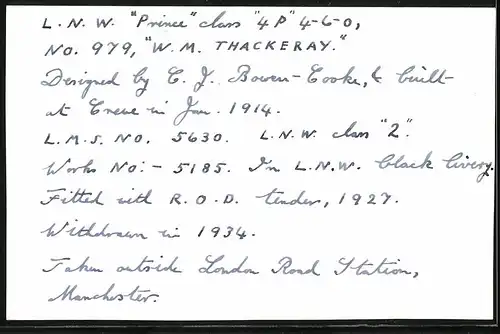 L.N.W. "Prince" class "4P" 4-6-0,
No. 979, "W.M. THACKERAY."
Designed by C.J. Bowen-Cooke, & built
at Crewe in Jan. 1914.
L.M.S. No. 5630. L.N.W. class "2".
Works No:- 5185. In L.N.W. black livery.
Fitted with R.O.D. tender, 1927.
Withdrawn in 1934.
Taken outside London Road Station,
Manchester.